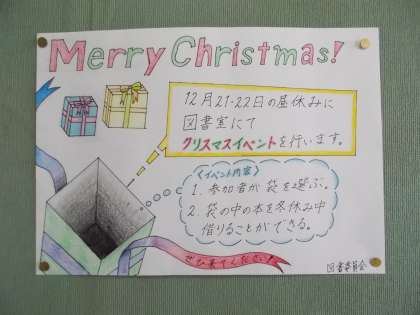 Merry Christmas!
12月21-22日の昼休みに
図書室にて
クリスマスイベントを行います。
〈イベント内容〉
1. 参加者が袋を選ぶ。
2. 袋の中の本を冬休み中
借りることができる。
ぜひ来てください!
図書委員会